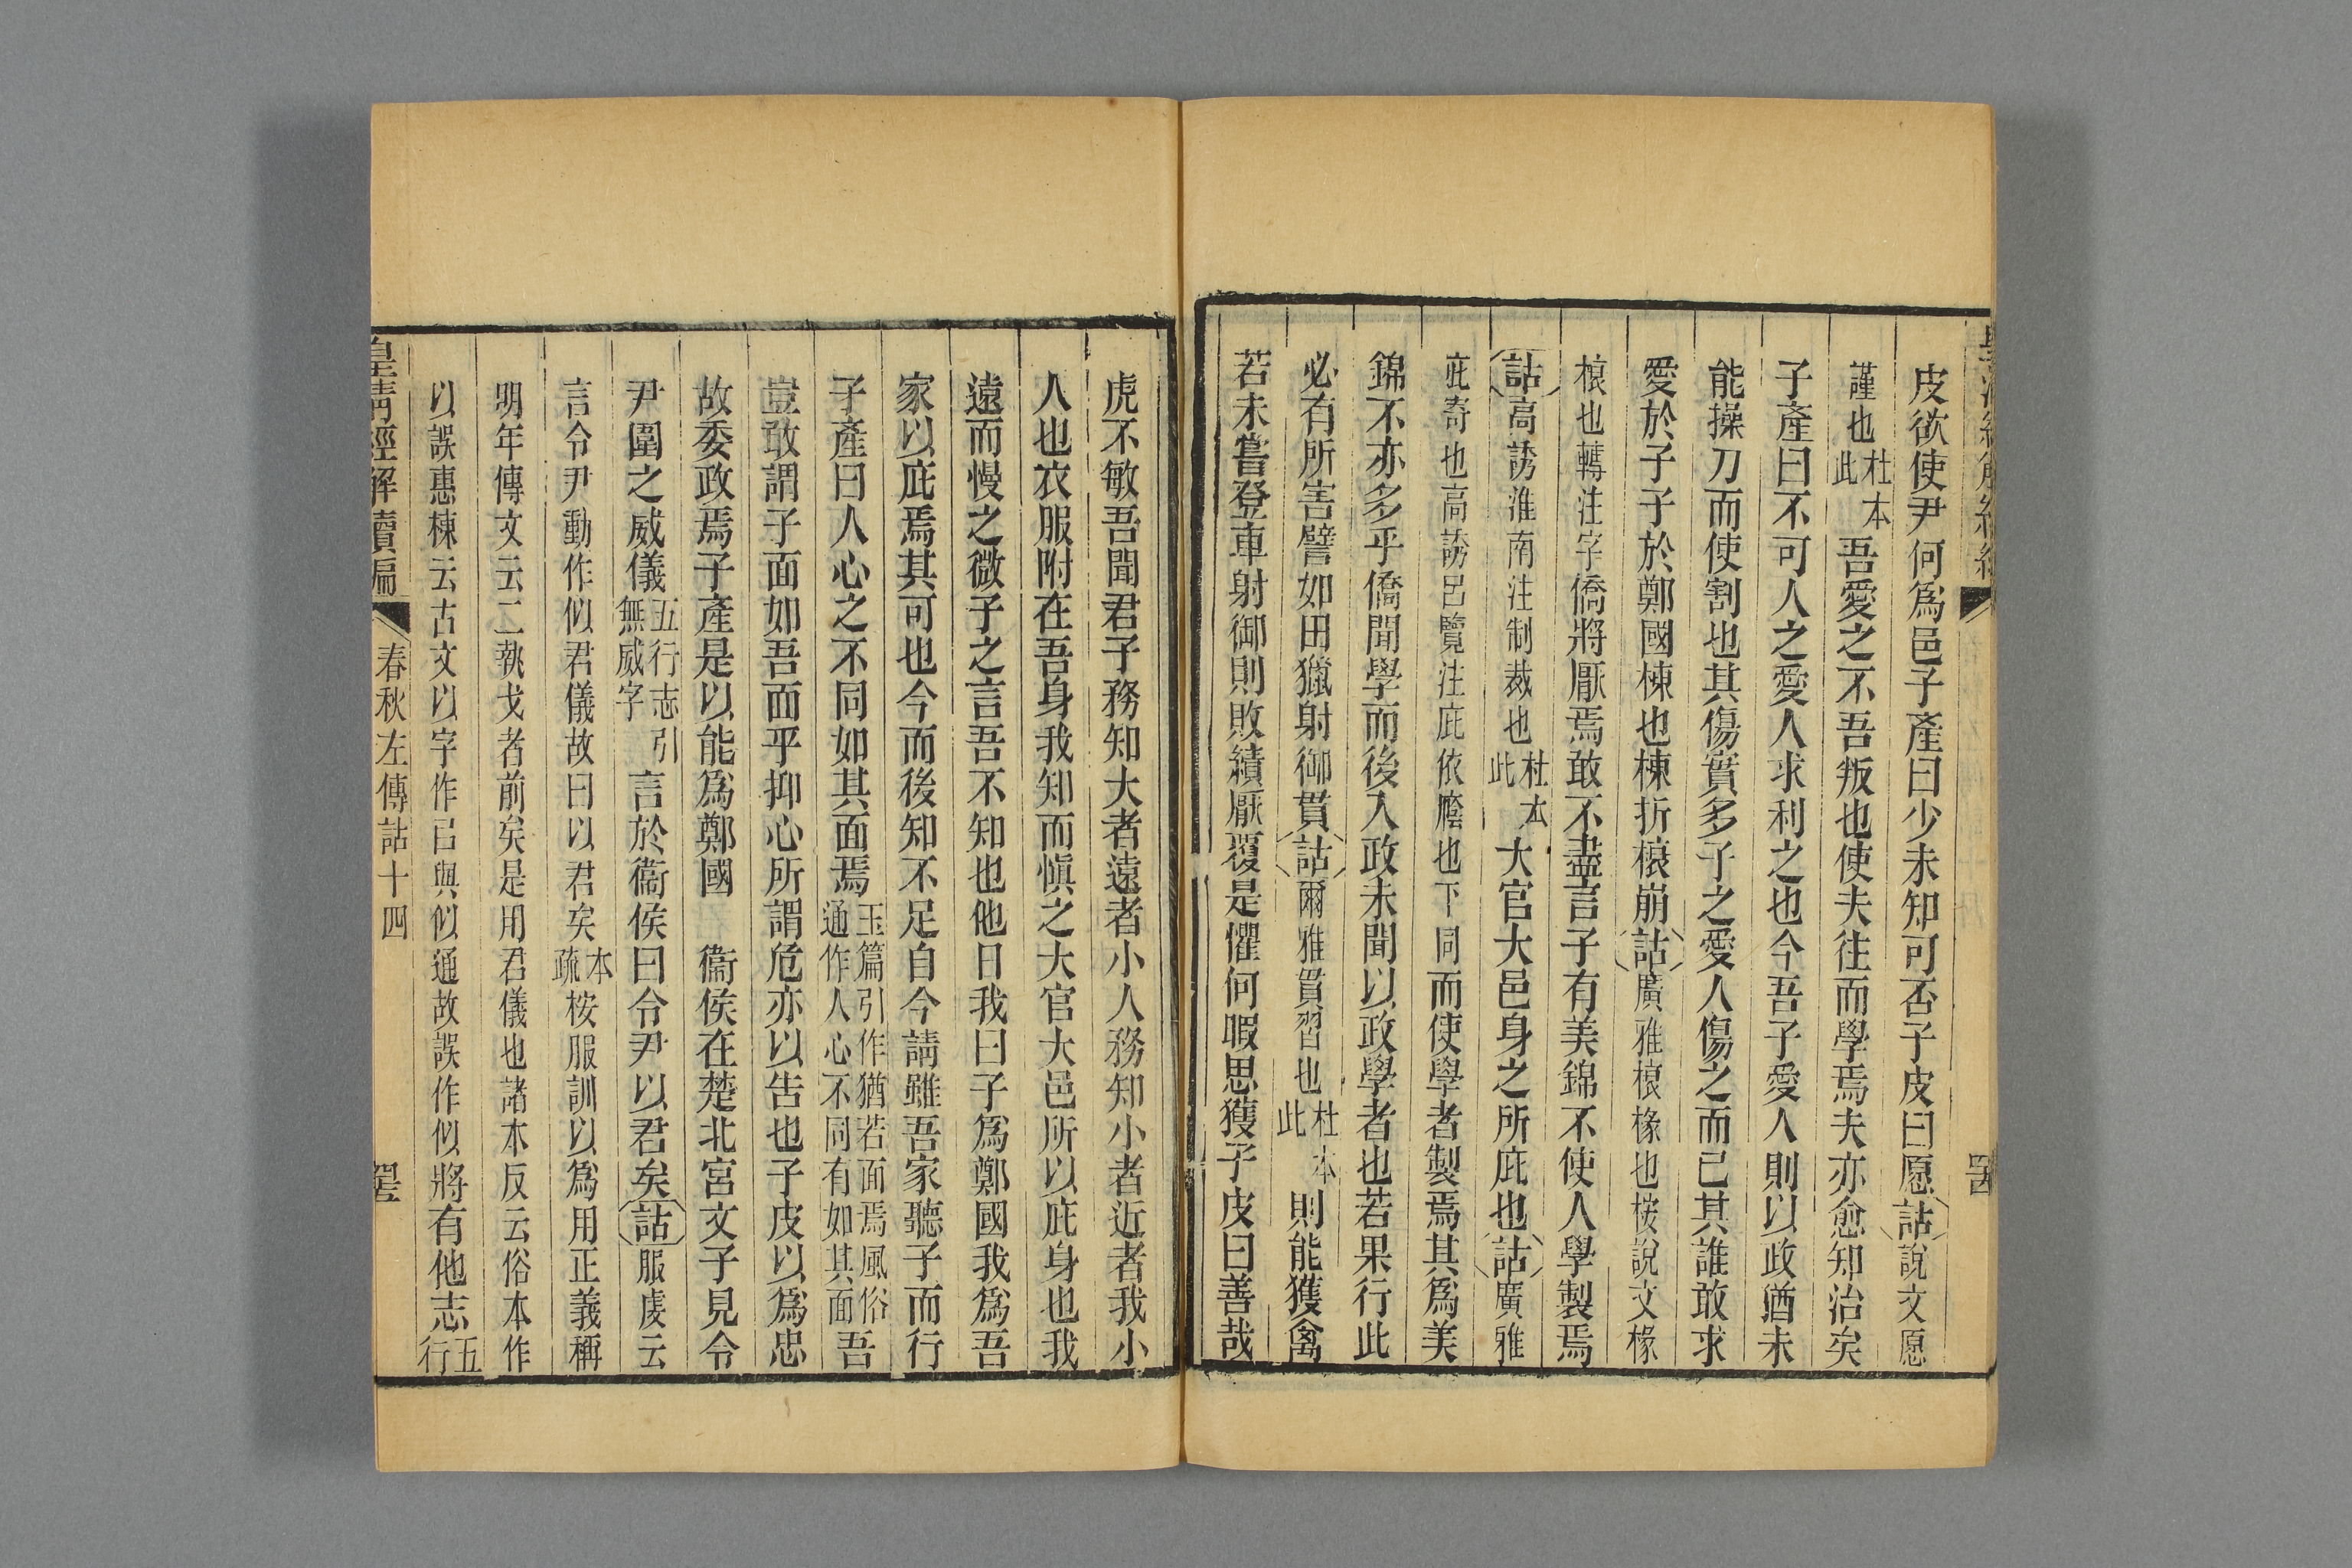 皮欲使尹何爲邑子產曰少未知可否子皮曰愿詁說文愿
謹也杜本此吾愛之不吾叛也使夫往而學焉夫亦愈知治矣
子產曰不可人之愛人求利之也今吾子愛人則以政猶未
能操刀而使割也其傷實多子之愛人傷之而已其誰敢求
愛於子子於鄭國棟也棟折榱崩詁廣雅榱椽也桉說文椽
榱也轉注字僑將厭焉敢不盡言子有美錦不使人學製焉
詁高誘淮南注制裁也杜本此大官大邑身之所庇也詁廣雅
庇寄也高誘呂覽注庇依廕也下同而使學者製焉其爲美
錦不亦多乎僑聞學而後入政未聞以政學者也若果行此
必有所害譬如田獵射御貫詁爾雅貫習也杜本此則能獲禽
若未嘗登車射御則敗績厭覆是懼何暇思獲子皮曰善哉
虎不敏吾聞君子務知大者遠者小人務知小者近者我小
人也衣服附在吾身我知而愼之大官大邑所以庇身也我
遠而慢之微子之言吾不知也他日我曰子爲鄭國我爲吾
家以庇焉其可也今而後知不足自今請雖吾家聽子而行
子產曰人心之不同如其面焉玉篇引作猶若面焉風俗通作人心不同有如其面吾
豈敢謂子面如吾面乎抑心所謂危亦以告也子皮以爲忠
故委政焉子產是以能爲鄭國　衞侯在楚北宮文子見令
尹圍之威儀五行志引無威字言於衞侯曰令尹以君矣詁服虔云
言令尹動作似君儀故曰以君矣本疏桉服訓以爲用正義稱
明年傳文云二執戈者前矣是用君儀也諸本反云俗本作
以誤惠棟云古文以字作㠯與似通故誤作似將有他志五行
皇淸經解續編　春秋左傳詁十四